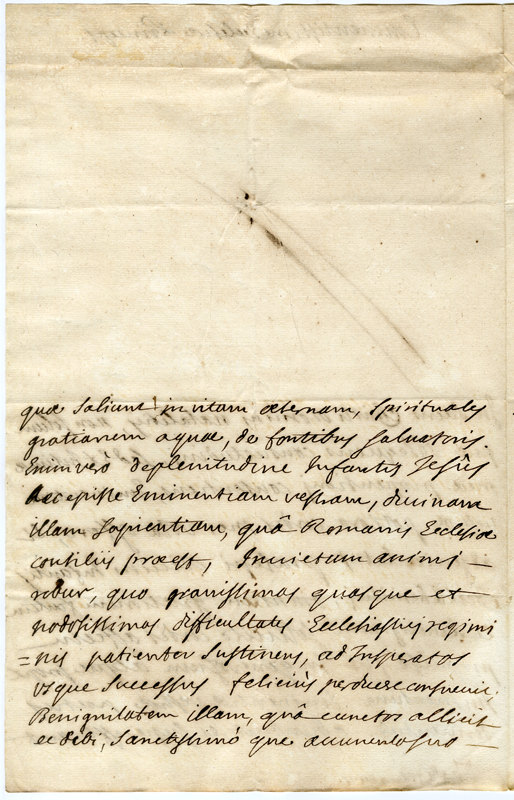 quæ saliunt in vitam æternam, spirituales
gratiarum aquæ, de fontibus Salvatoris.
Enimvero de plenitudine Infantis Jesûs
Accepisse Eminentiam vestram, divinam
illam Sapientiam, quâ Romanis Ecclesiæ
consiliis præest, Invictum animi
robur, quo gravissimas quasque et
nodosissimas difficultates Ecclesiastici regimi
=nis patienter sustinens, ad Insperatos
usque Successus feliciùs perducere consuevit,
Benignitatem illam, quâ cunctos allicit
et sibi, Sanctissimo que